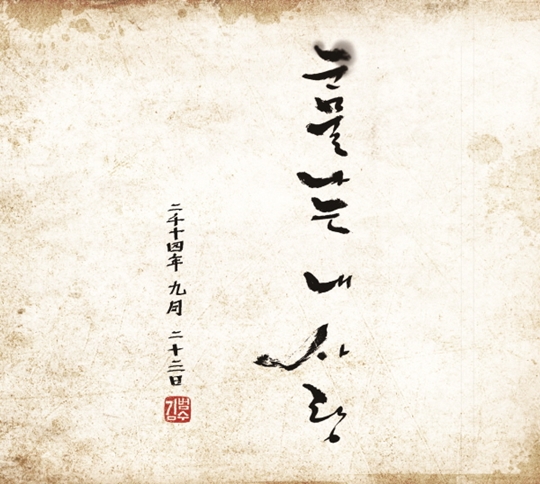 눈물나는 내 사랑
二千十四年 九月 二十三日
김범수